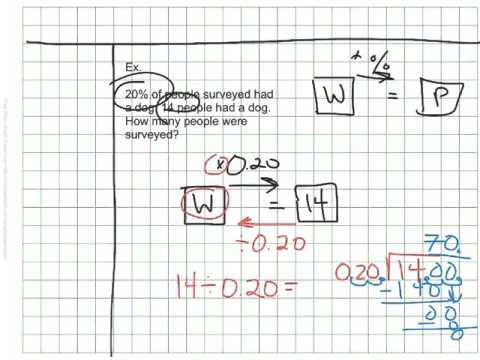 Ex.
20% of people surveyed had
a dog. 14 people had a dog.
How many people were
surveyed?
× %
W = P
× 0.20
W = 14
÷ 0.20
14 ÷ 0.20 =
70.
0.20. 14.00.
- 140
00
- 0